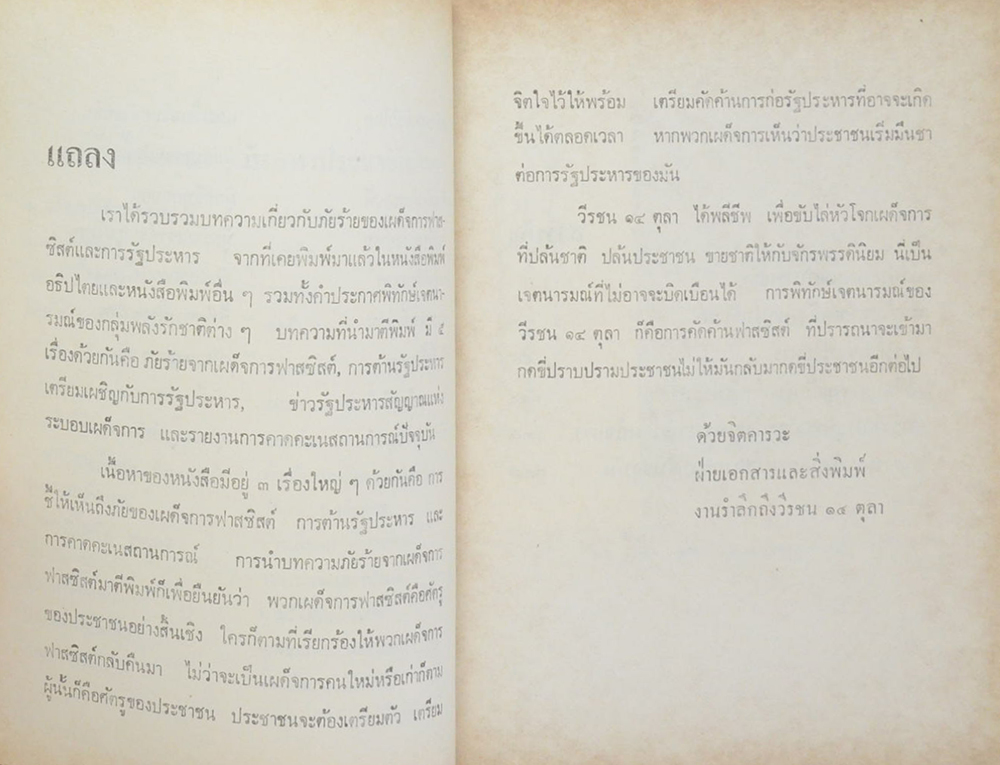 แถลง
เราได้รวบรวมบทความเกี่ยวกับภัยร้ายของเผด็จการฟาส-
ซิสต์และการรัฐประหาร จากที่เคยพิมพ์มาแล้วในหนังสือพิมพ์
อธิปไตยและหนังสือพิมพ์อื่น ๆ รวมทั้งคำประกาศพิทักษ์เจตนา-
รมณ์ของกลุ่มพลังรักชาติต่าง ๆ บทความที่นำมาตีพิมพ์ มี ๕
เรื่องด้วยกันคือ ภัยร้ายจากเผด็จการฟาสซิสต์, การต้านรัฐประหาร
เตรียมเผชิญกับการรัฐประหาร, ข่าวรัฐประหารสัญญาณแห่ง
ระบอบเผด็จการ และรายงานการคาดคะเนสถานการณ์ปัจจุบัน
เนื้อหาของหนังสือมีอยู่ ๓ เรื่องใหญ่ ๆ ด้วยกันคือ การ
ชี้ให้เห็นถึงภัยของเผด็จการฟาสซิสต์ การต้านรัฐประหาร และ
การคาดคะเนสถานการณ์ การนำบทความภัยร้ายจากเผด็จการ
ฟาสซิสต์มาตีพิมพ์ก็เพื่อยืนยันว่า พวกเผด็จการฟาสซิสต์คือศัตรู
ของประชาชนอย่างสิ้นเชิง ใครก็ตามที่เรียกร้องให้พวกเผด็จการ
ฟาสซิสต์กลับคืนมา ไม่ว่าจะเป็นเผด็จการคนใหม่หรือเก่าก็ตาม
ผู้นั้นก็คือศัตรูของประชาชน ประชาชนจะต้องเตรียมตัว เตรียม
จิตใจไว้ให้พร้อม เตรียมคัดค้านการก่อรัฐประหารที่อาจจะเกิด
ขึ้นได้ตลอดเวลา หากพวกเผด็จการเห็นว่าประชาชนเริ่มมึนชา
ต่อการรัฐประหารของมัน
วีรชน ๑๔ ตุลา ได้พลีชีพ เพื่อขับไล่หัวโจกเผด็จการ
ที่ปล้นชาติ ปล้นประชาชน ขายชาติให้กับจักรพรรดินิยม นี่เป็น
เจตนารมณ์ที่ไม่อาจจะบิดเบือนได้ การพิทักษ์เจตนารมณ์ของ
วีรชน ๑๔ ตุลา ก็คือการคัดค้านฟาสซิสต์ ที่ปรารถนาจะเข้ามา
กดขี่ปราบปรามประชาชนไม่ให้มันกลับมากดขี่ประชาชนอีกต่อไป
ด้วยจิตคารวะ
ฝ่ายเอกสารและสิ่งพิมพ์
งานรำลึกถึงวีรชน ๑๔ ตุลา